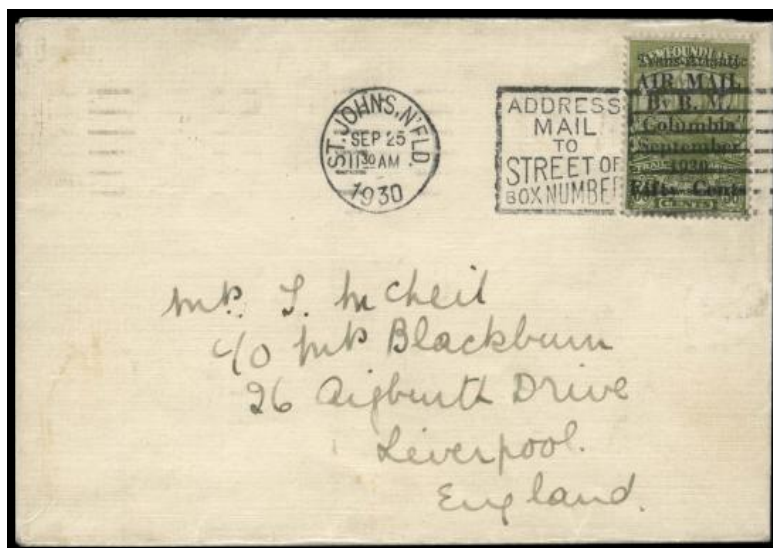 ST. JOHNS, N'FLD.
SEP 25
11 30 AM
1930
ADDRESS
MAIL
TO
STREET OR
BOX NUMBER
NEWFOUNDLAND
Trans-Atlantic
AIR MAIL
By B. M.
"Columbia"
September
1930
Fifty Cents
CENTS
Mr. T. McNeil
c/o Mr Blackburn
26 Aigburth Drive
Liverpool.
England.